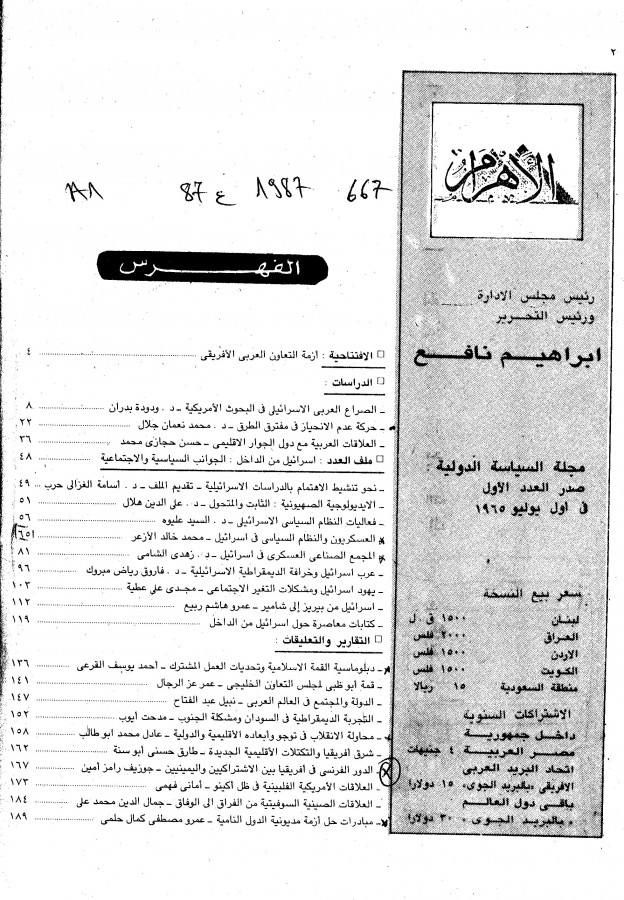 ٢
A1 87 ع 1987 667
الفهرس
□ الافتتاحية : أزمة التعاون العربى الأفريقى ٤
□ الدراسات :
ـ الصراع العربى الاسرائيلى فى البحوث الأمريكية ـ د . ودودة بدران ٨
ـ حركة عدم الانحياز فى مفترق الطرق ـ د . محمد نعمان جلال ٢٢
ـ العلاقات العربية مع دول الجوار الاقليمى ـ حسن حجازى محمد ٣٦
□ ملف العدد : اسرائيل من الداخل : الجوانب السياسية والاجتماعية ٤٨
ـ نحو تنشيط الاهتمام بالدراسات الاسرائيلية ـ تقديم الملف ـ د. أسامة الغزالى حرب ٤٩
ـ الايديولوجية الصهيونية : الثابت والمتحول ـ د. على الدين هلال ٥١
ـ فعاليات النظام السياسى الاسرائيلى ـ د . السيد عليوه ٥٦
ـ العسكريون والنظام السياسى فى اسرائيل ـ محمد خالد الأزعر ٦٥
ـ المجمع الصناعى العسكرى فى اسرائيل ـ د. زهدى الشامى ٨١
ـ عرب اسرائيل وخرافة الديمقراطية الاسرائيلية ـ د. فاروق رياض مبروك ٩٦
ـ يهود اسرائيل ومشكلات التغير الاجتماعى ـ مجدى على عطية ١٠٣
ـ اسرائيل من بيريز إلى شامير ـ عمرو هاشم ربيع ١١٢
ـ كتابات معاصرة حول اسرائيل من الداخل ١١٩
□ التقارير والتعليقات :
ـ دبلوماسية القمة الاسلامية وتحديات العمل المشترك ـ أحمد يوسف القرعى ١٣٦
ـ قمة أبو ظبى لمجلس التعاون الخليجى ـ عمر عز الرجال ١٤١
ـ الدولة والمجتمع فى العالم العربى ـ نبيل عبد الفتاح ١٤٧
ـ التجربة الديمقراطية فى السودان ومشكلة الجنوب ـ مدحت أيوب ١٥٢
ـ محاولة الانقلاب فى توجو وابعاده الاقليمية والدولية ـ عادل محمد ابو طالب ١٥٨
ـ شرق أفريقيا والتكتلات الأقليمية الجديدة ـ طارق حسنى أبو سنة ١٦٢
ـ الدور الفرنسى فى أفريقيا بين الاشتراكيين واليمينيين ـ جوزيف رامز أمين ١٦٧
ـ العلاقات الأمريكية الفلبينية فى ظل أكينو ـ أمانى فهمى ١٧٣
ـ العلاقات الصينية السوفيتية من الفراق الى الوفاق ـ جمال الدين محمد على ١٨٤
ـ مبادرات حل أزمة مديونية الدول النامية ـ عمرو مصطفى كمال حلمى ١٨٩
الأهرام
رئيس مجلس الادارة
ورئيس التحرير
ابراهيم نافع
مجلة السياسة الدولية
صدر العدد الأول
فى اول يوليو ١٩٦٥
سعر بيع النسخة
لبنان ١٥٠٠ ق . ل
العراق ٢٠٠٠ فلس
الاردن ١٥٠٠ فلس
الكويت ١٥٠٠ فلس
منطقة السعودية ١٥ ريالا
الاشتراكات السنوية
داخل جمهورية
مصر العربية ٤ جنيهات
اتحاد البريد العربى
الافريقى «بالبريد الجوى» ١٥ دولارا
باقى دول العالم
«بالبريد الجوى» ٣٠ دولارا